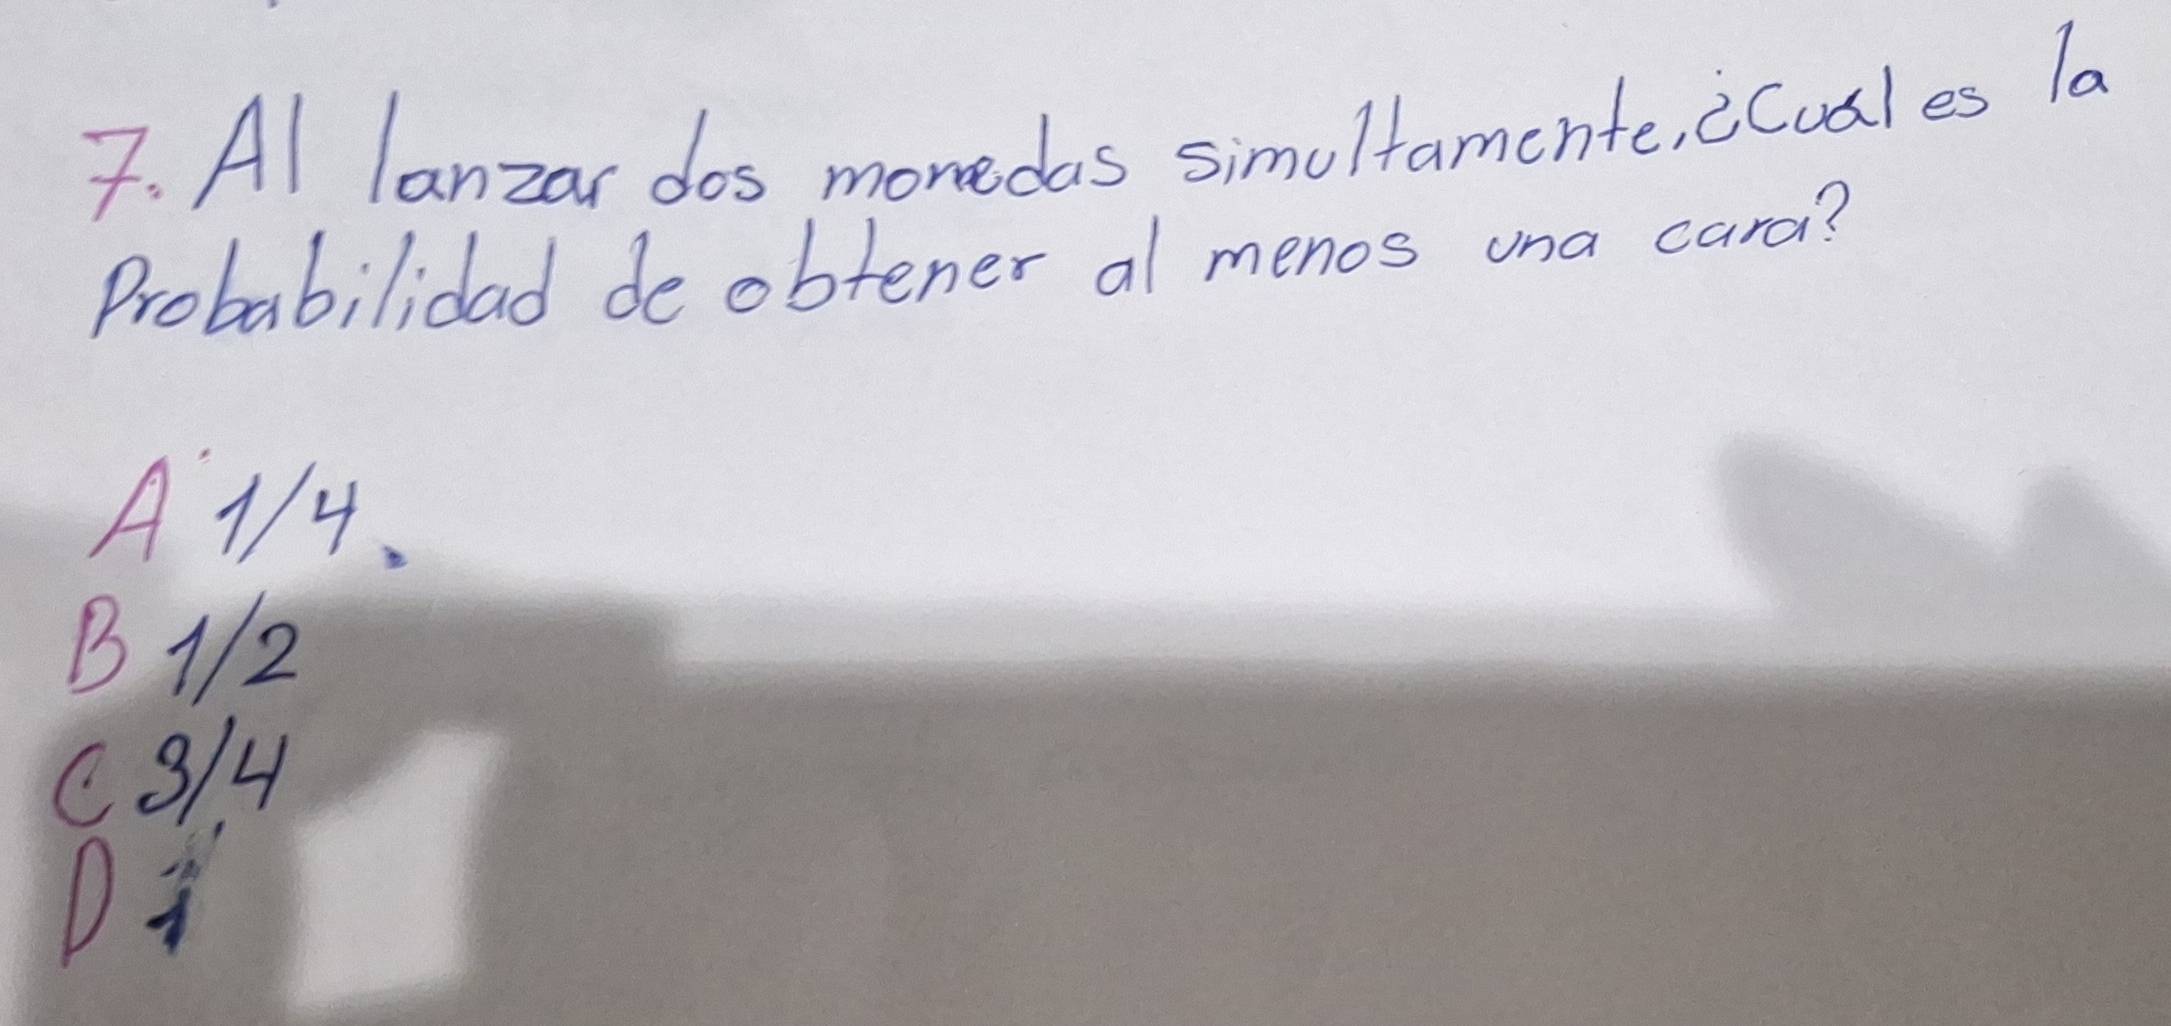 7. Al lanzar dos monedas simultamente, ¿Cuál es la
Probabilidad de obtener al menos una cara?
A 1/4.
B 1/2
C 3/4
D 1